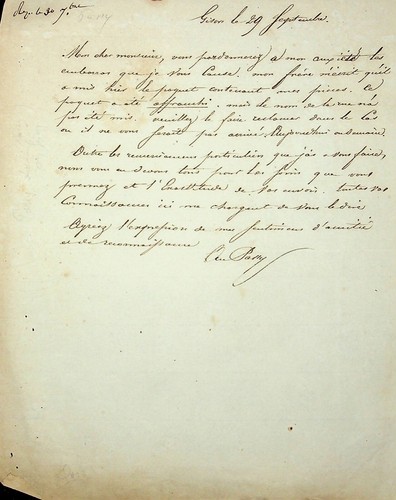 Rep. le 30 7.bre
Gisors le 29 Septembre.
Mon cher monsieur, vous pardonnerez à mon anxiété les
embarras que je vous cause. mon frère m'écrit qu'il
a mis hier le paquet contenant mes pièces. Ce
paquet a été affranchi, mais le nom de la rue n'a
pas été mis. veuillez le faire réclamer dans le cas
où il ne vous serait pas arrivé, aujourd'hui ou demain.
Outre les remerciemens particuliers que j'ai à vous faire,
nous vous en devons tous pour les soins que vous
prennez et l'exactitude de vos envois. toutes vos
connaissances ici me chargent de vous le dire
Agréez l'expression de mes sentimens d'amitié
et de reconnaissance
Passy